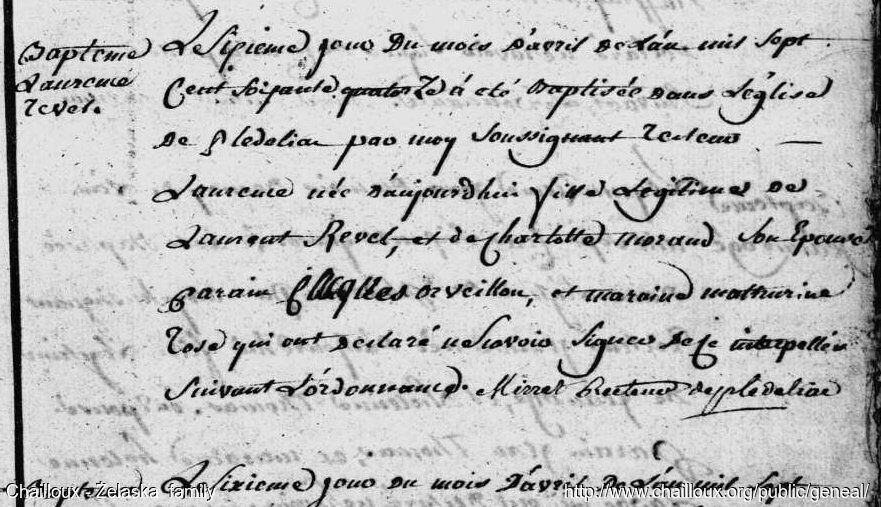 Bapteme
Laurence
revel.
Le sixieme jour Du mois D'avril De L'an mil sept
Cent soixante quatorze á eté Baptisée Dans L'église
De pledeliac par moy soussignant recteur
Laurence née d'aujourd'hui fille Legitime De
Laurent Revel, et de Charlotte morand son Epouse
Parain orveillon, et maraine mathurine
rose qui ont declaré ne savoir signer De ce interpellés
suivant L'ordonnance. Recteur de pledeliac
Bapteme Le sixieme jour Du mois D'avril De L'an mil sept
Chailloux, Zelaska family
http://www.chailloux.org/public/geneal/